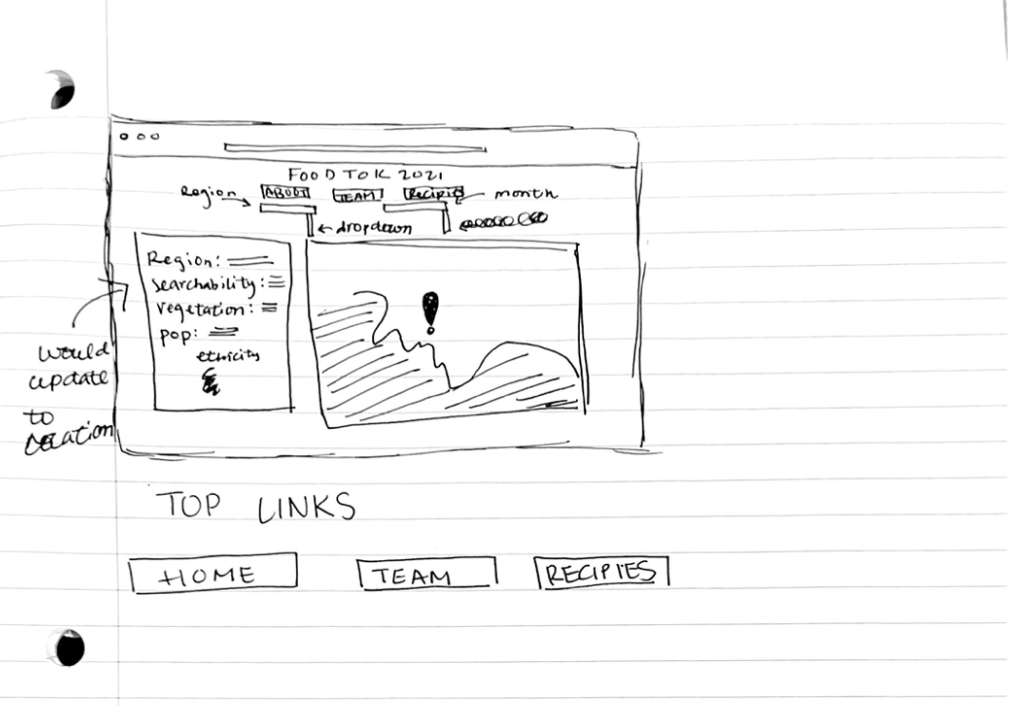 FOOD TOK 2021
Region ABOUT TEAM RECIPIE month
dropdown
Region:
searchability:
vegetation:
pop:
ethicity
!
would
update
to
location
TOP LINKS
HOME TEAM RECIPIES